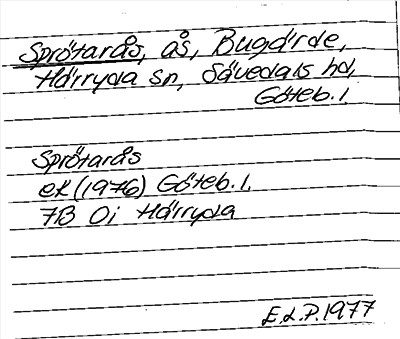 Sprötarås, ås, Bugärde,
Härryda sn, Sävedals hd,
Göteb. l
Sprötarås
ek (1976) Göteb. l.
7B 0i Härryda
E.L.P. 1977